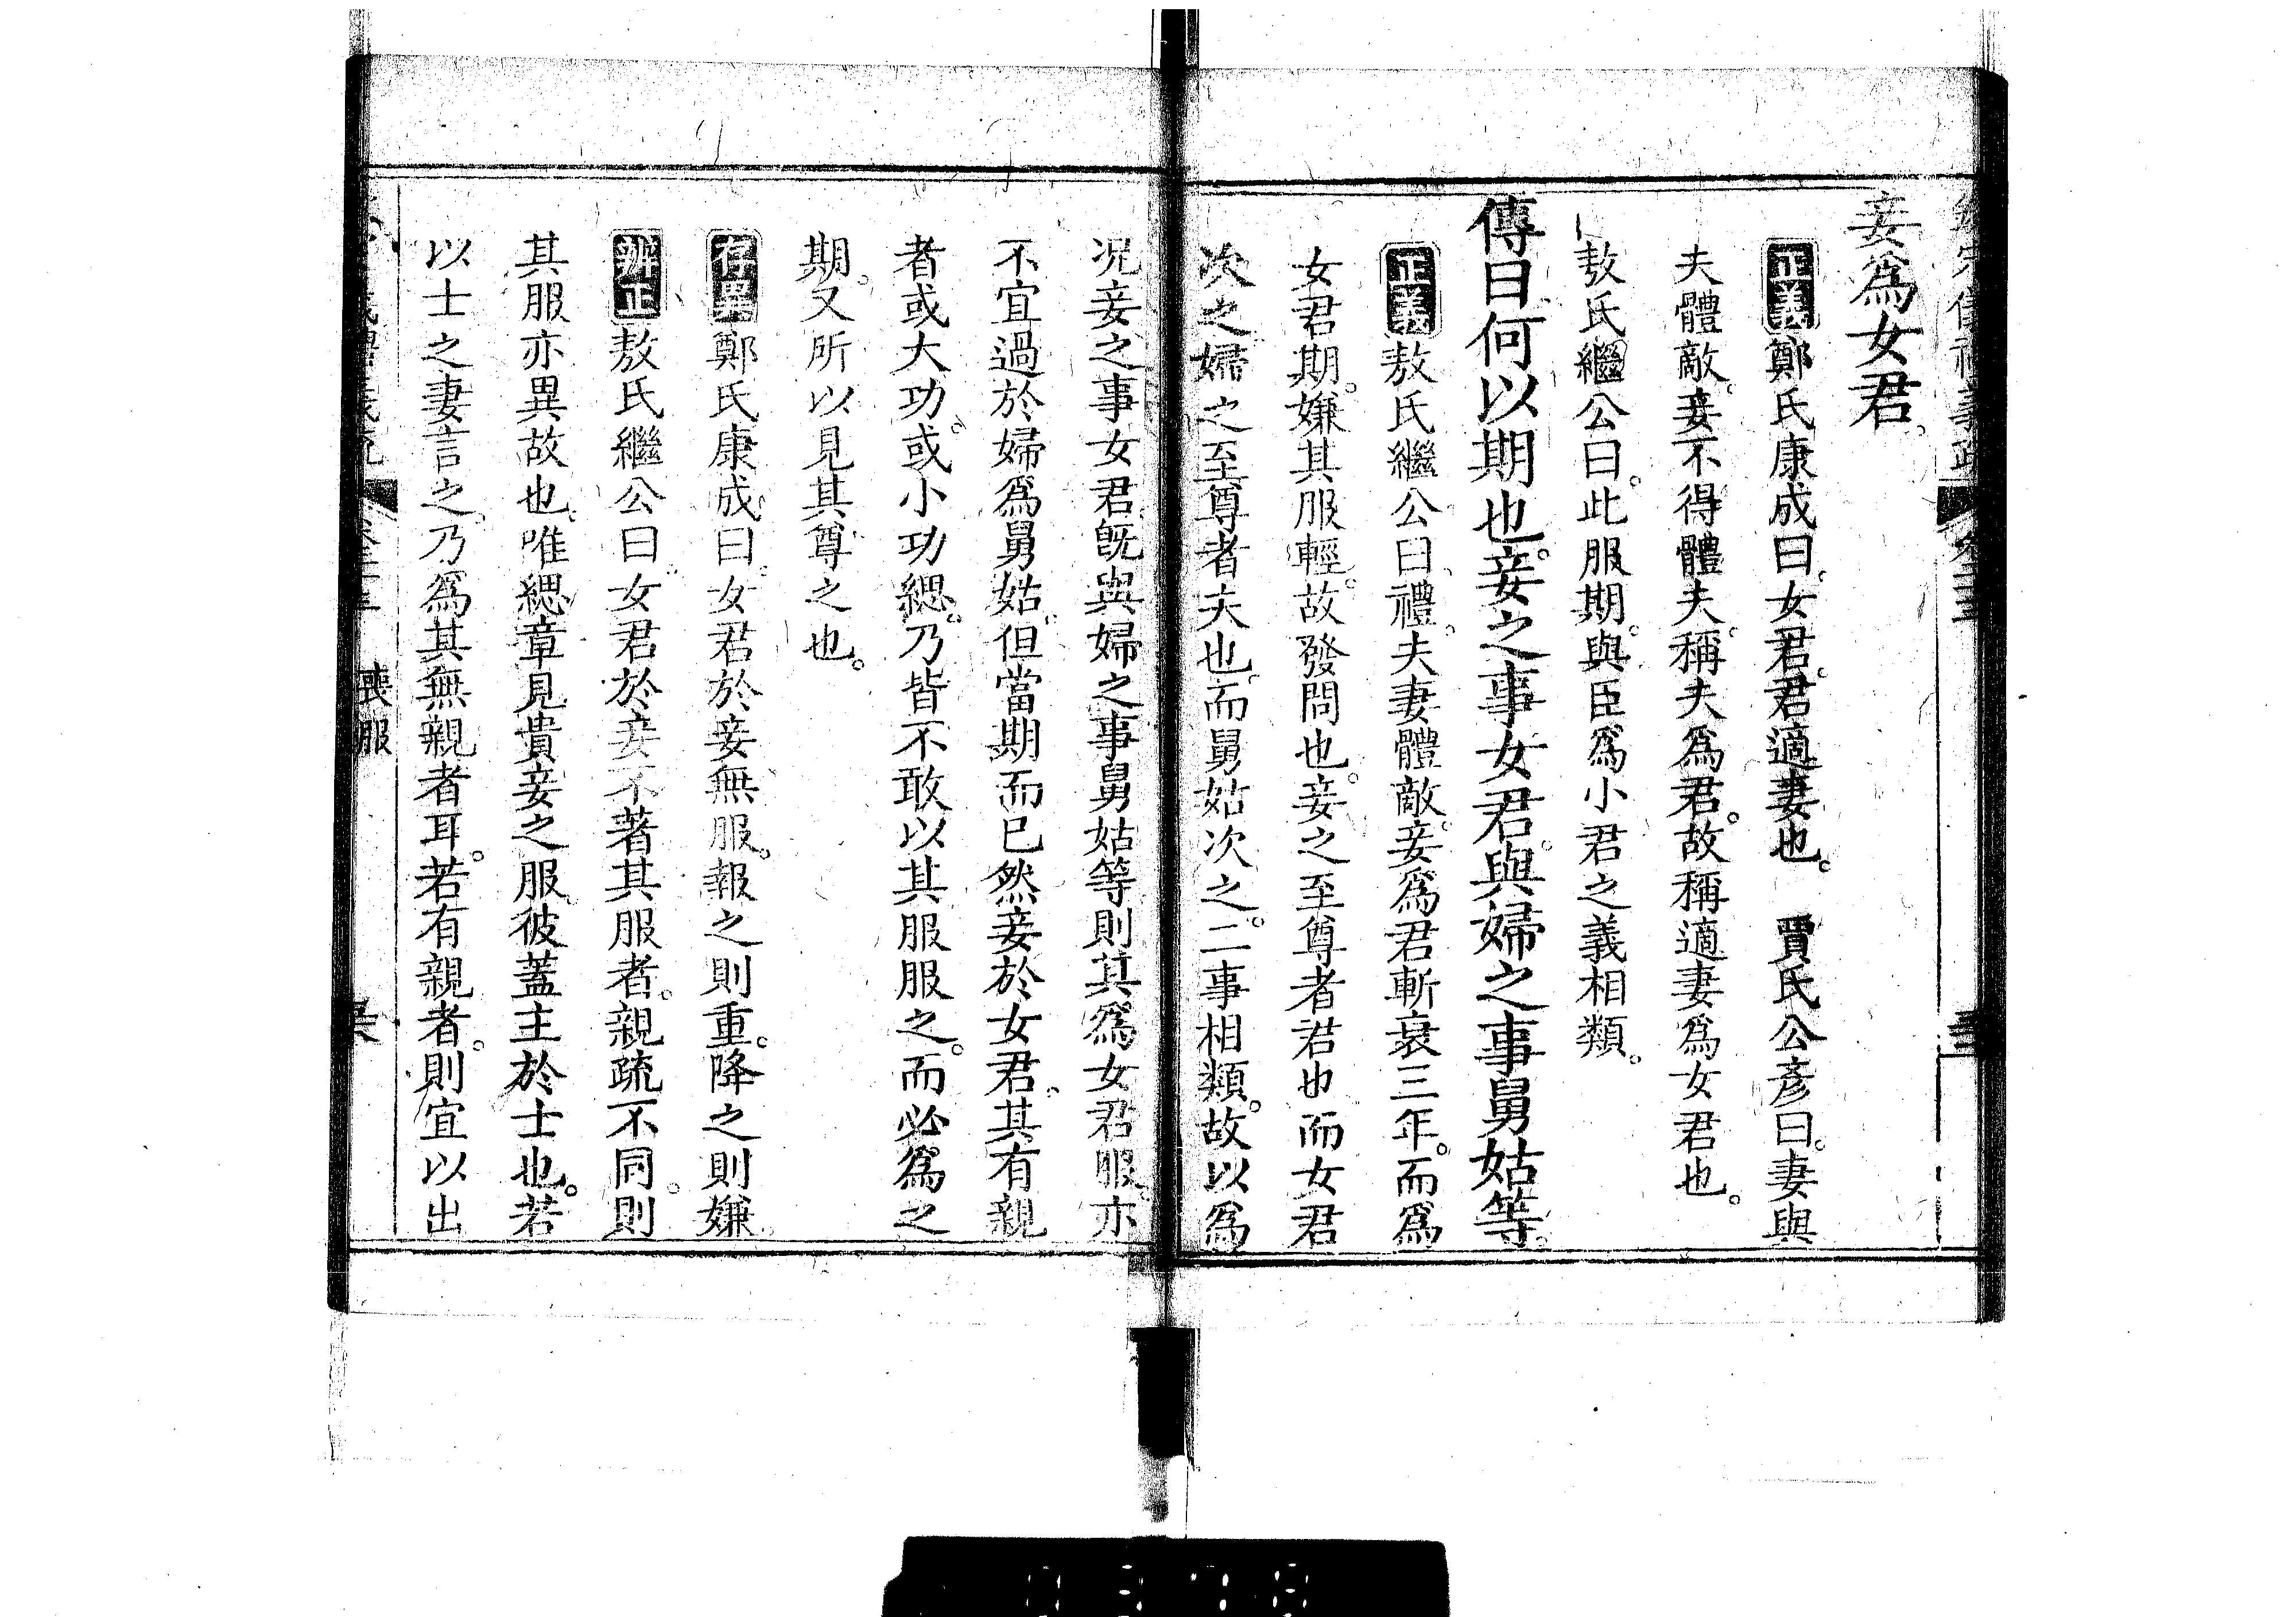 妾爲女君。
正義鄭氏康成曰。女君。君適妻也。　賈氏公彥曰。妻與
夫體敵。妾不得體夫。稱夫爲君。故稱適妻爲女君也。
敖氏繼公曰。此服期。與臣爲小君之義相類。
傳曰何以期也。妾之事女君。與婦之事舅姑等。
正義敖氏繼公曰。禮。夫妻體敵。妾爲君斬衰三年。而爲
女君期。嫌其服輕。故發問也。妾之至尊者君也而女君
次之婦之至尊者夫也。而舅姑次之。二事相類。故以爲
况妾之事女君旣與婦之事舅姑等則其爲女君服。亦
不宜過於婦爲舅姑。但當期而已然妾於女君。其有親
者或大功。或小功緦。乃皆不敢以其服服之。而必爲之
期。又所以見其尊之也。
存異鄭氏康成曰。女君於妾無服。報之則重。降之則嫌
辨正敖氏繼公曰。女君於妾不著其服者。親疏不同。則
其服亦異故也。唯緦章見貴妾之服。彼蓋主於士也。若
以士之妻言之。乃爲其無親者耳。若有親者。則宜以出
喪服